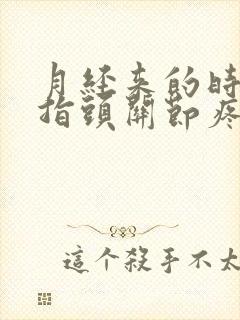 月经来的时
指頭關節疼
這个殺手不太